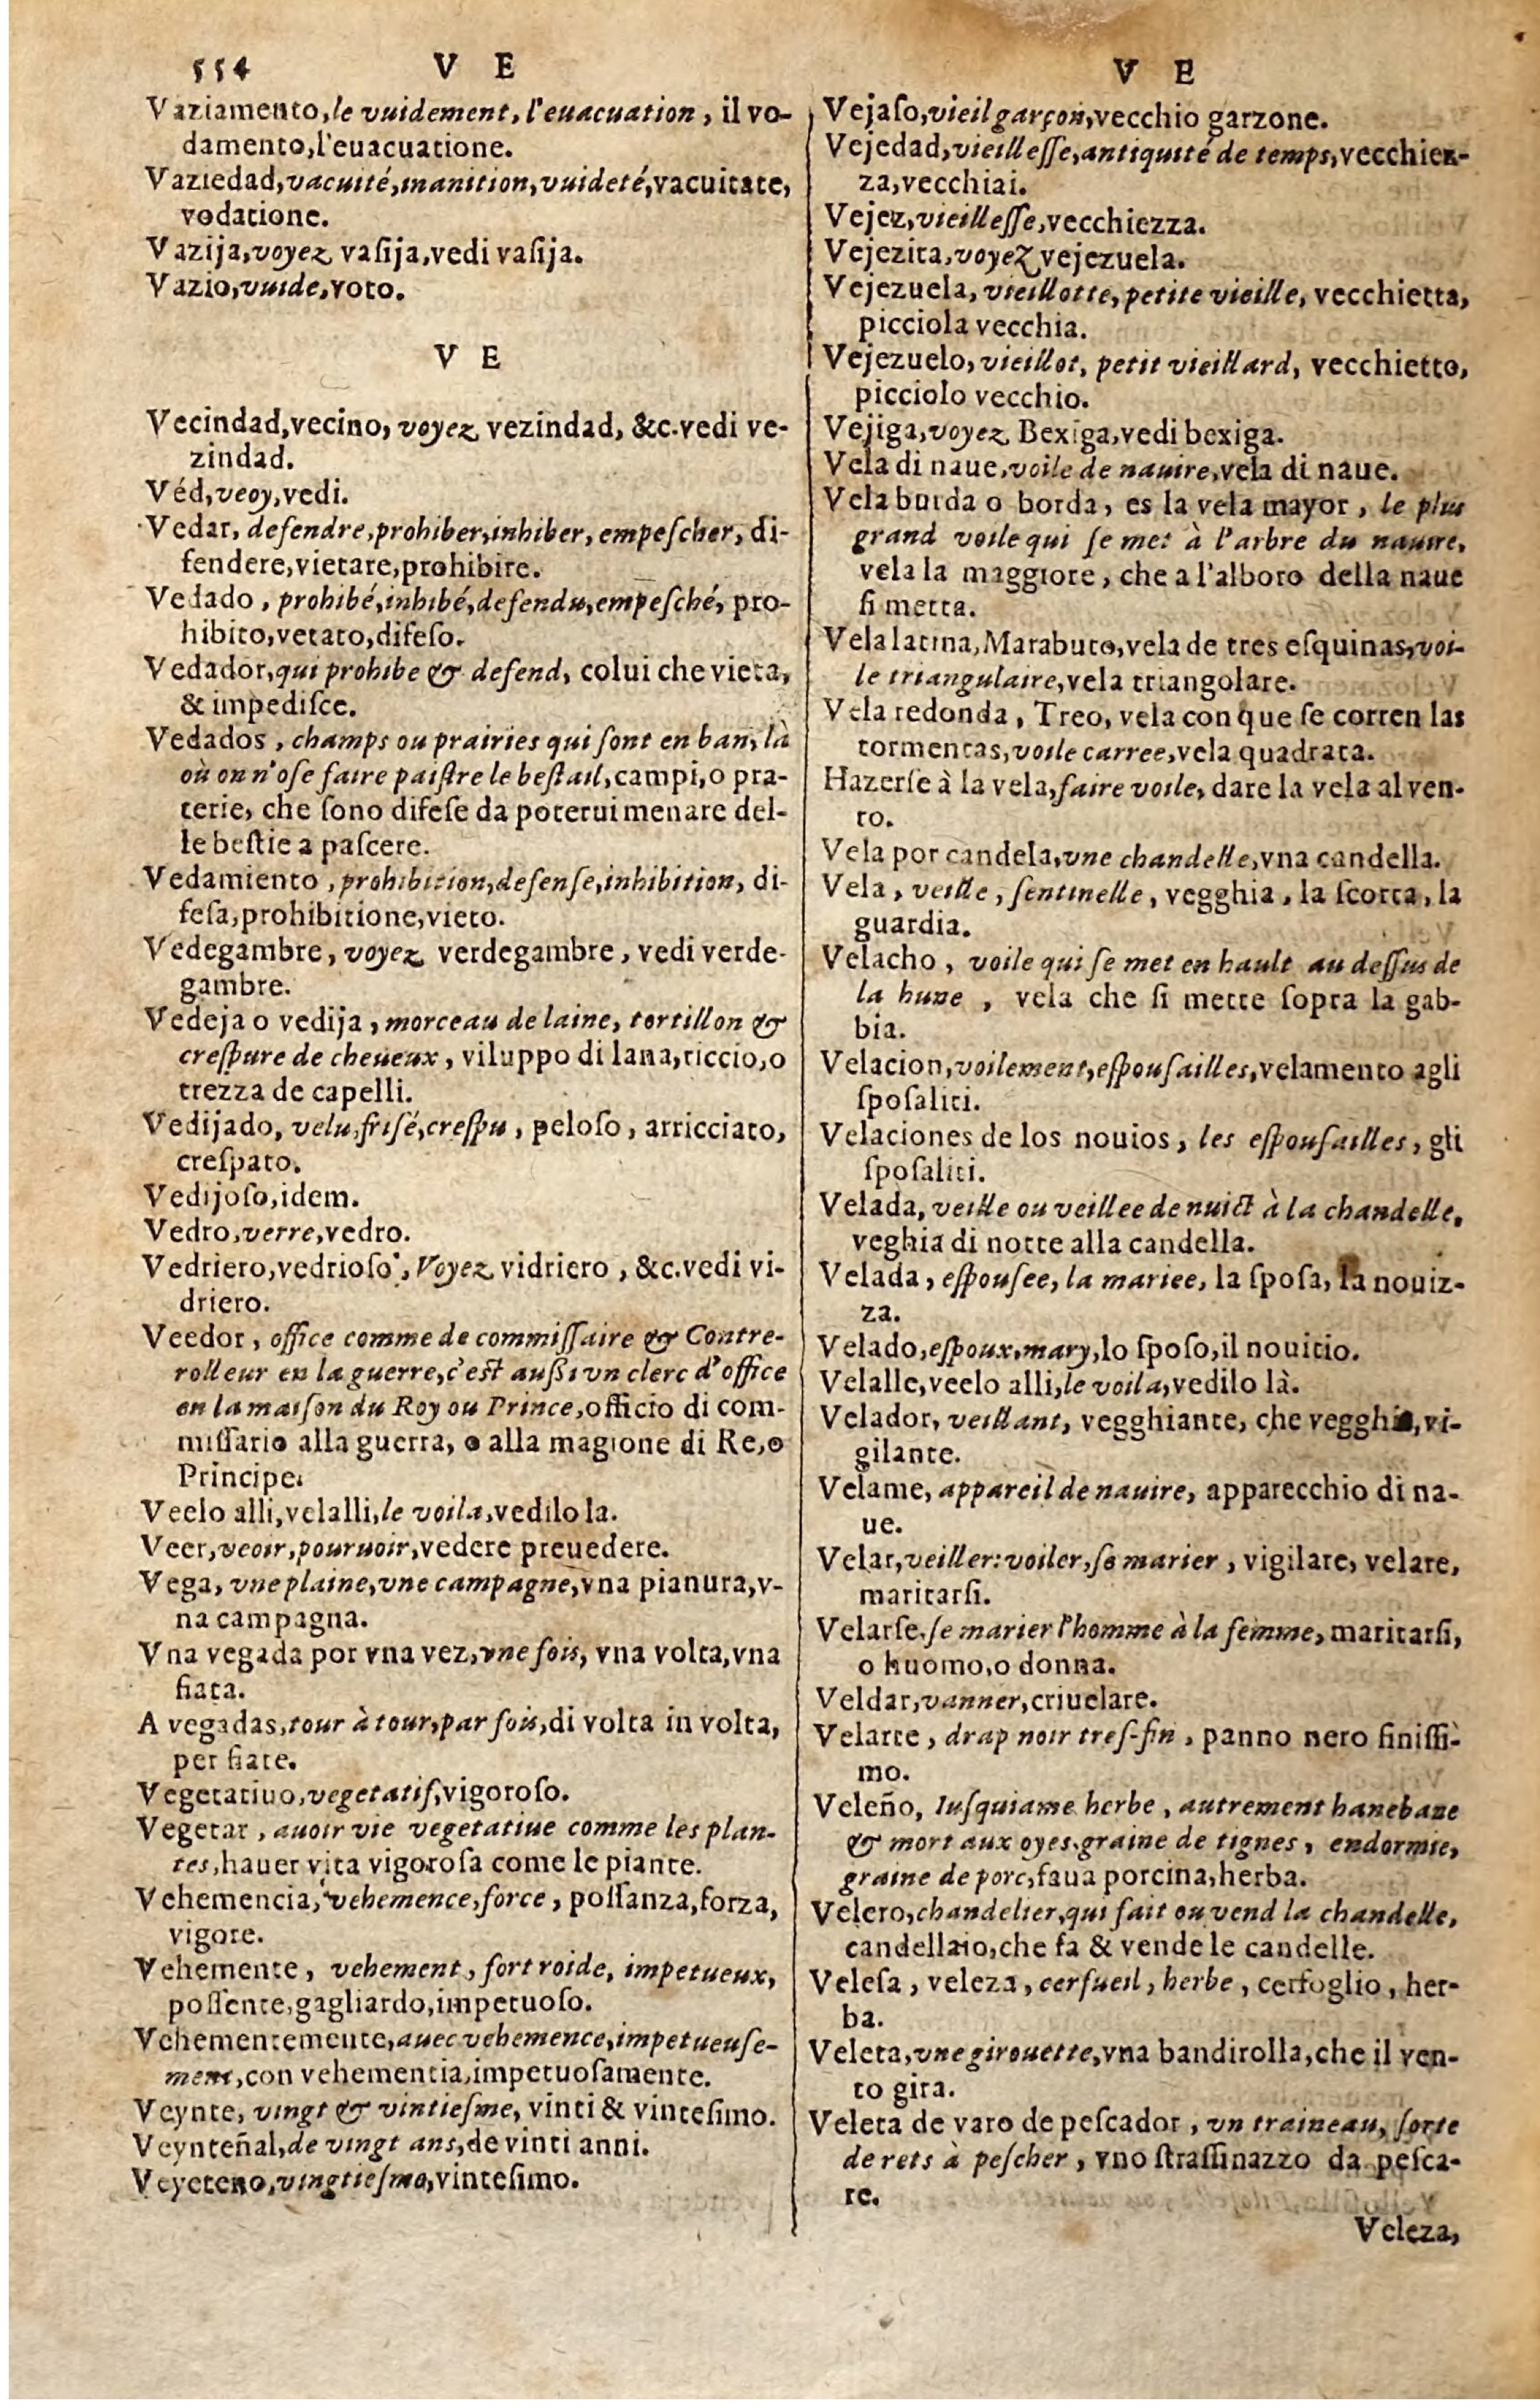 554 V E
Vaziamento, le vuidement, l'euacuation, il vo-
damento, l'euacuatione.
Vaziedad, vacuité, inanition, vuideté, vacuitate,
vodatione.
Vazija, voyez vaſija, vedi vaſija.
Vazio, vuide, voto.
V E
Vecindad, vecino, voyez vezindad, &c. vedi ve-
zindad.
Véd, veoy, vedi.
Vedar, defendre, prohiber, inhiber, empeſcher, di-
fendere, vietare, prohibire.
Vedado, prohibé, inhibé, defendu, empeſché, pro-
hibito, vetato, difeſo.
Vedador, qui prohibe & defend, colui che vieta,
& impediſce.
Vedados, champs ou prairies qui ſont en ban, là
où on n'oſe faire paiſtre le beſtail, campi, o pra-
terie, che ſono difeſe da poterui menare del-
le beſtie a paſcere.
Vedamiento, prohibition, defenſe, inhibition, di-
feſa, prohibitione, vieto.
Vedegambre, voyez verdegambre, vedi verde-
gambre.
Vedeja o vedija, morceau de laine, tortillon &
creſpure de cheueux, viluppo di lana, riccio, o
trezza de capelli.
Vedijado, velu, friſé, creſpu, peloſo, arricciato,
creſpato.
Vedijoſo, idem.
Vedro, verre, vedro.
Vedriero, vedrioſo, Voyez vidriero, &c. vedi vi-
driero.
Veedor, office comme de commiſſaire & Contre-
rolleur en la guerre, c'eſt auſsi vn clerc d'office
en la maiſon du Roy ou Prince, officio di com-
miſſario alla guerra, o alla magione di Re, o
Principe.
Veelo alli, velalli, le voila, vedilo la.
Veer, veoir, pouruoir, vedere preuedere.
Vega, vne plaine, vne campagne, vna pianura, v-
na campagna.
Vna vegada por vna vez, vne fois, vna volta, vna
fiata.
A vegadas, tour à tour, par fois, di volta in volta,
per fiate.
Vegetatiuo, vegetatif, vigoroſo.
Vegetar, auoir vie vegetatiue comme les plan-
tes, hauer vita vigoroſa come le piante.
Vehemencia, vehemence, force, poſſanza, forza,
vigore.
Vehemente, vehement, fort roide, impetueux,
poſſente, gagliardo, impetuoſo.
Vehementemente, auec vehemence, impetueuſe-
ment, con vehementia, impetuoſamente.
Veynte, vingt & vintieſme, vinti & vinteſimo.
Veynteñal, de vingt ans, de vinti anni.
Veyeteno, vingtieſme, vinteſimo.
V E
Vejaſo, vieil garçon, vecchio garzone.
Vejedad, vieilleſſe, antiquité de temps, vecchiez-
za, vecchiai.
Vejez, vieilleſſe, vecchiezza.
Vejezita, voyez vejezuela.
Vejezuela, vieillotte, petite vieille, vecchietta,
picciola vecchia.
Vejezuelo, vieillot, petit vieillard, vecchietto,
picciolo vecchio.
Vejiga, voyez Bexiga, vedi bexiga.
Vela di naue, voile de nauire, vela di naue.
Vela burda o borda, es la vela mayor, le plus
grand voile qui ſe met à l'arbre du nauire,
vela la maggiore, che a l'alboro della naue
ſi metta.
Vela latina, Marabuto, vela de tres eſquinas, voi-
le triangulaire, vela triangolare.
Vela redonda, Treo, vela con que ſe corren las
tormentas, voile carree, vela quadrata.
Hazerſe à la vela, faire voile, dare la vela al ven-
to.
Vela por candela, vne chandelle, vna candella.
Vela, veille, ſentinelle, vegghia, la ſcorta, la
guardia.
Velacho, voile qui ſe met en hault au deſſus de
la hune, vela che ſi mette ſopra la gab-
bia.
Velacion, voilement, eſpouſailles, velamento agli
ſpoſaliti.
Velaciones de los nouios, les eſpouſailles, gli
ſpoſaliti.
Velada, veille ou veillee de nuict à la chandelle,
veghia di notte alla candella.
Velada, eſpouſee, la mariee, la ſpoſa, la nouiz-
za.
Velado, eſpoux, mary, lo ſpoſo, il nouitio.
Velalle, veelo alli, le voila, vedilo là.
Velador, veillant, vegghiante, che vegghia, vi-
gilante.
Velame, appareil de nauire, apparecchio di na-
ue.
Velar, veiller: voiler, ſe marier, vigilare, velare,
maritarſi.
Velarſe, ſe marier l'homme à la femme, maritarſi,
o huomo, o donna.
Veldar, vanner, criuelare.
Velarte, drap noir treſ-fin, panno nero finiſſi-
mo.
Veleño, Iuſquiame herbe, autrement hanebane
& mort aux oyes, graine de tignes, endormie,
graine de porc, faua porcina, herba.
Velero, chandelier, qui fait ou vend la chandelle,
candellaio, che fa & vende le candelle.
Veleſa, veleza, cerfueil, herbe, cerfoglio, her-
ba.
Veleta, vne girouette, vna bandirolla, che il ven-
to gira.
Veleta de varo de peſcador, vn traineau, ſorte
de rets à peſcher, vno ſtraſſinazzo da peſca-
re.
Veleza,